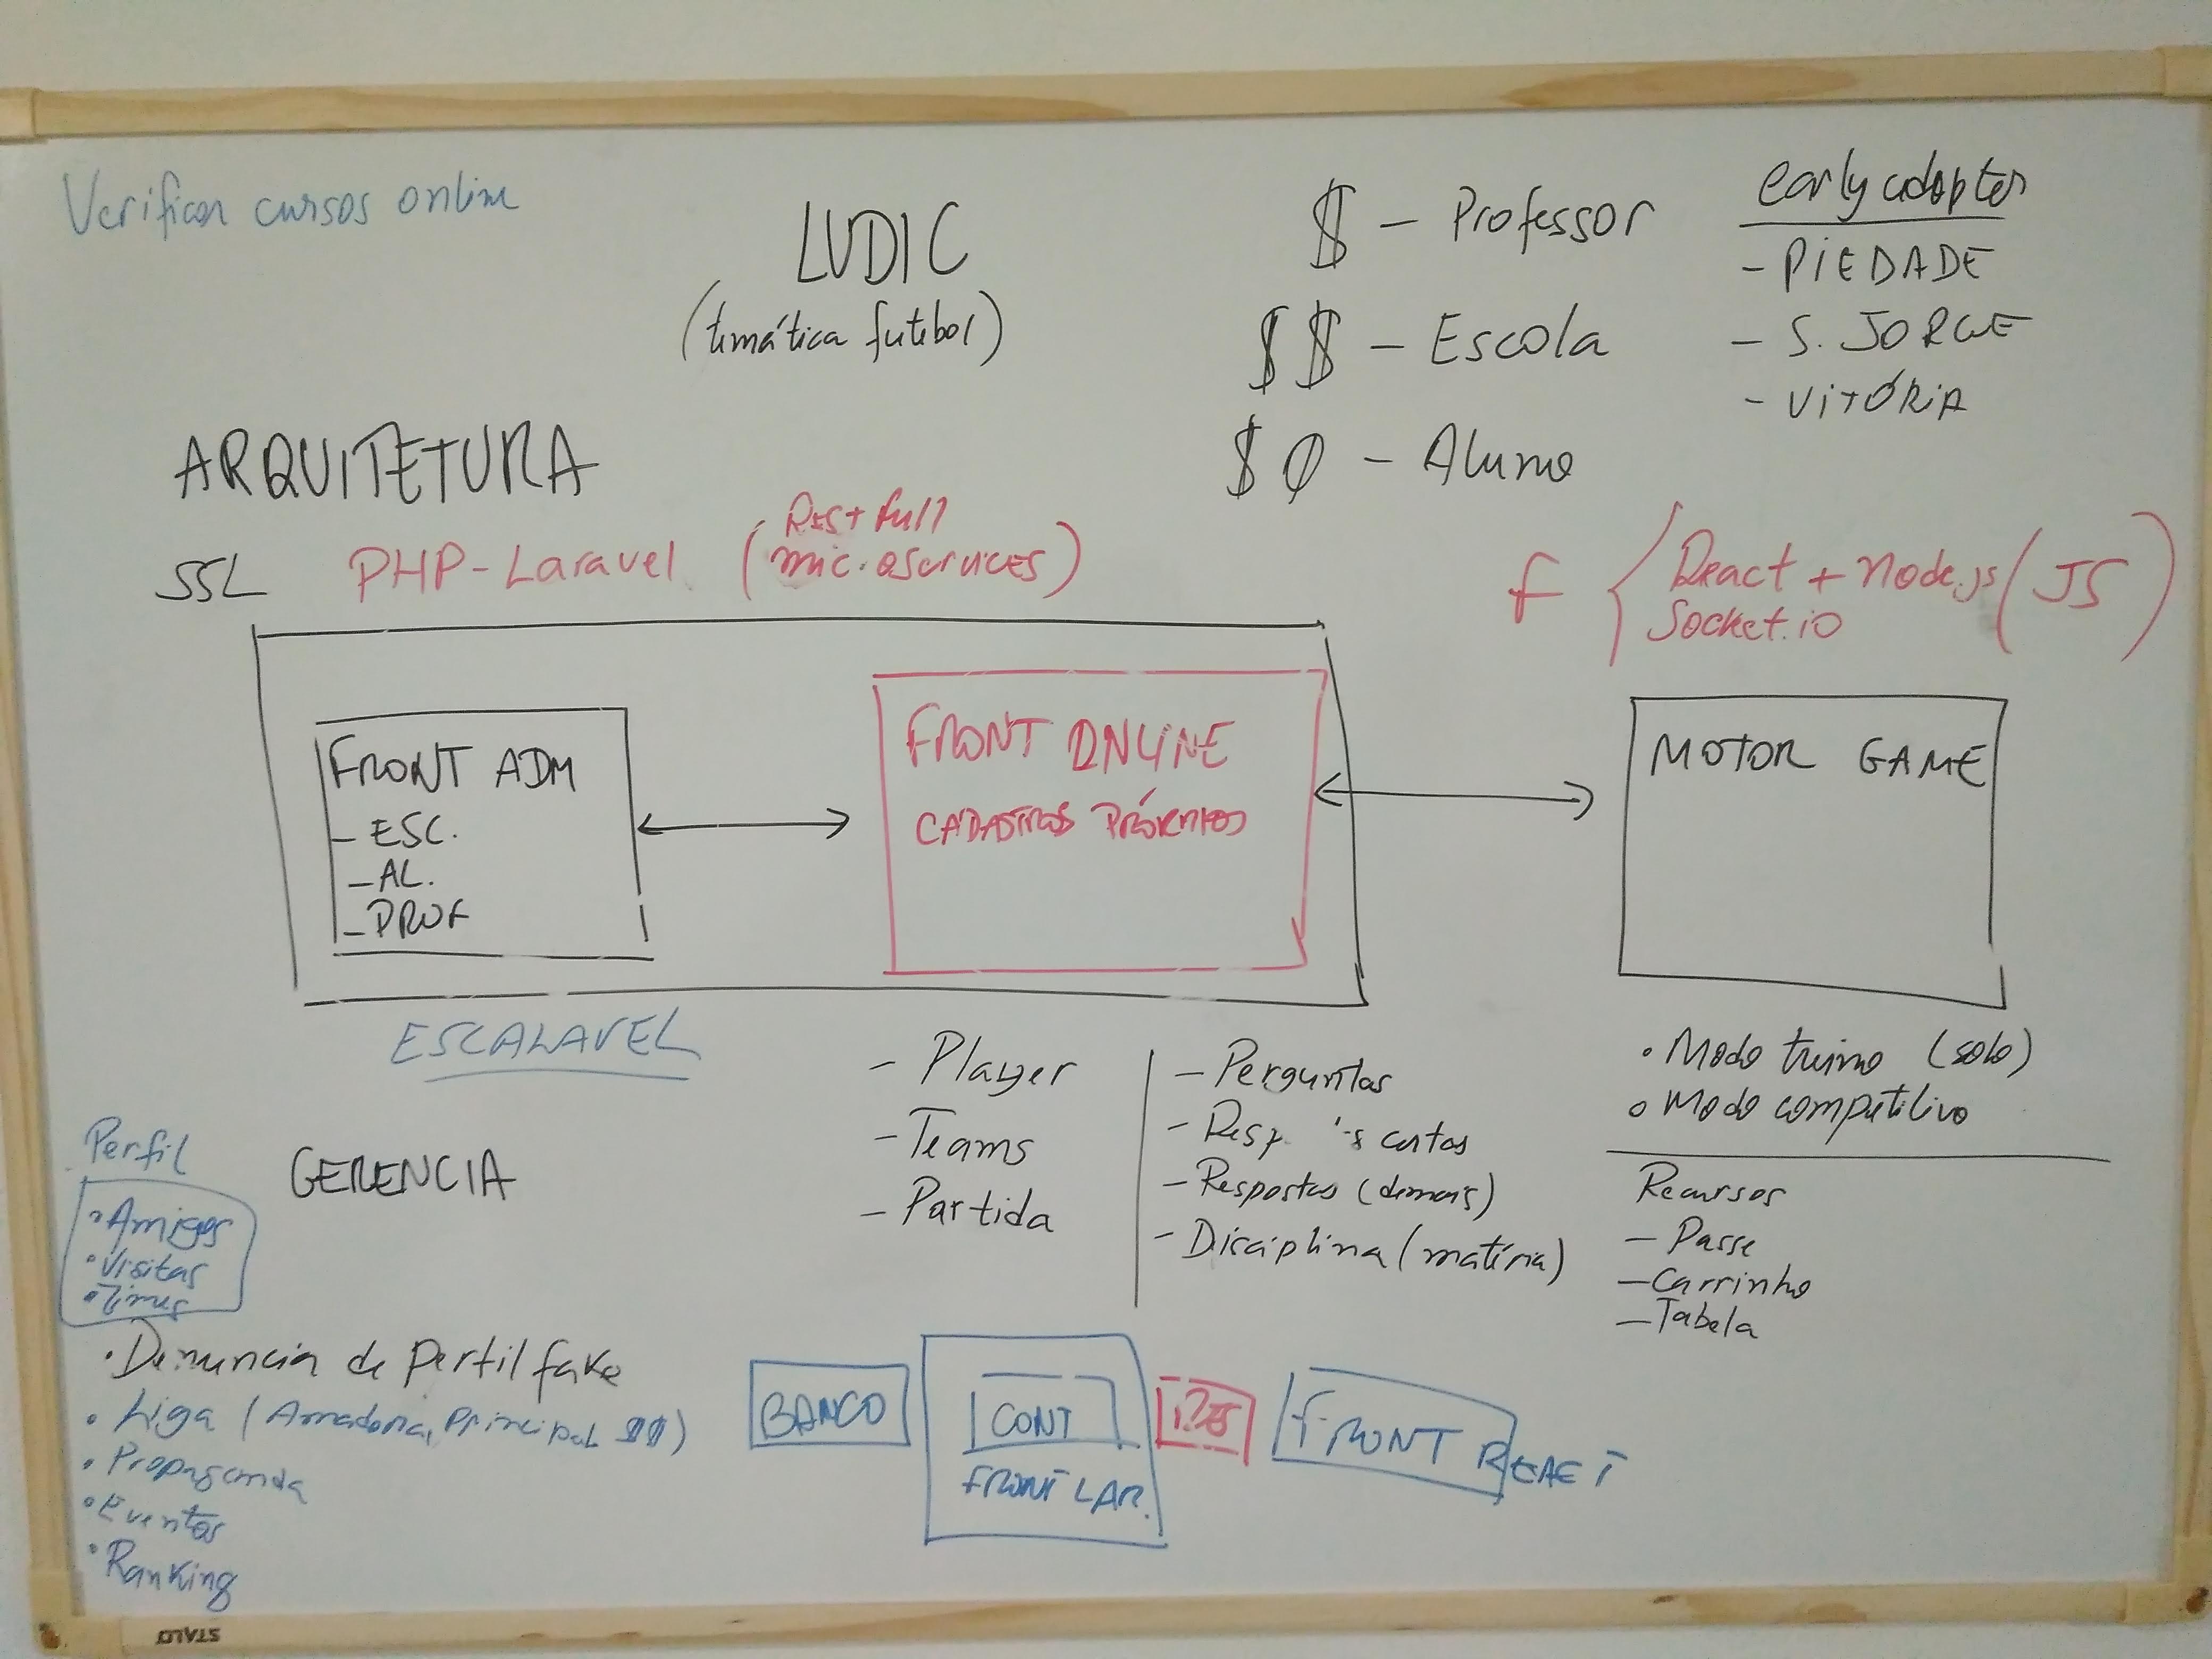 Verificar cursos online
LUDIC
(temática futebol)
$ - Professor
$$ - Escola
$ 0 - Aluno
early adopter
- PIEDADE
- S. JORGE
- VITÓRIA
ARQUITETURA
SSL
PHP-Laravel
(Rest full
microservices)
f { React + Node.js (JS)
Socket.io
FRONT ADM
- ESC.
- AL.
- PROF
FRONT ONLINE
CADASTROS
MOTOR GAME
ESCALAVEL
- Player
- Teams
- Partida
- Perguntas
- Resp. certas
- Respostas (demais)
- Disciplina (matéria)
• Modo treino (solo)
• Modo competitivo
Recursos
- Passe
- Carrinho
- Tabela
GERENCIA
Perfil
• Amigos
• Visitas
• Times
• Denuncia de perfil fake
• Liga (Amadora, Principal $$)
• Propaganda
• Eventos
• Ranking
BANCO
CONT
FRONT LAR.
FRONT REACT
STALO